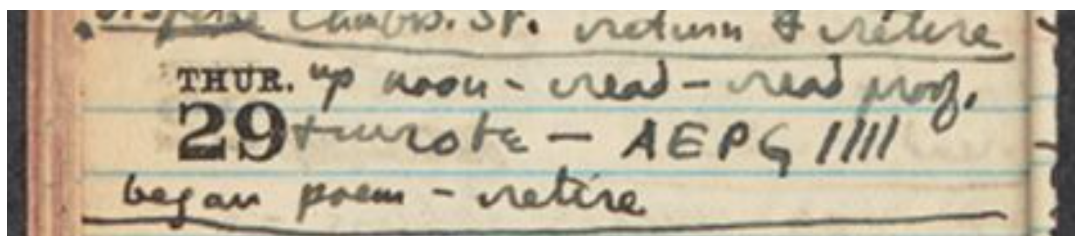 St. return & retire
THUR. up noon - read - read proof,
29 + wrote — AEPG IIII
began poem - retire